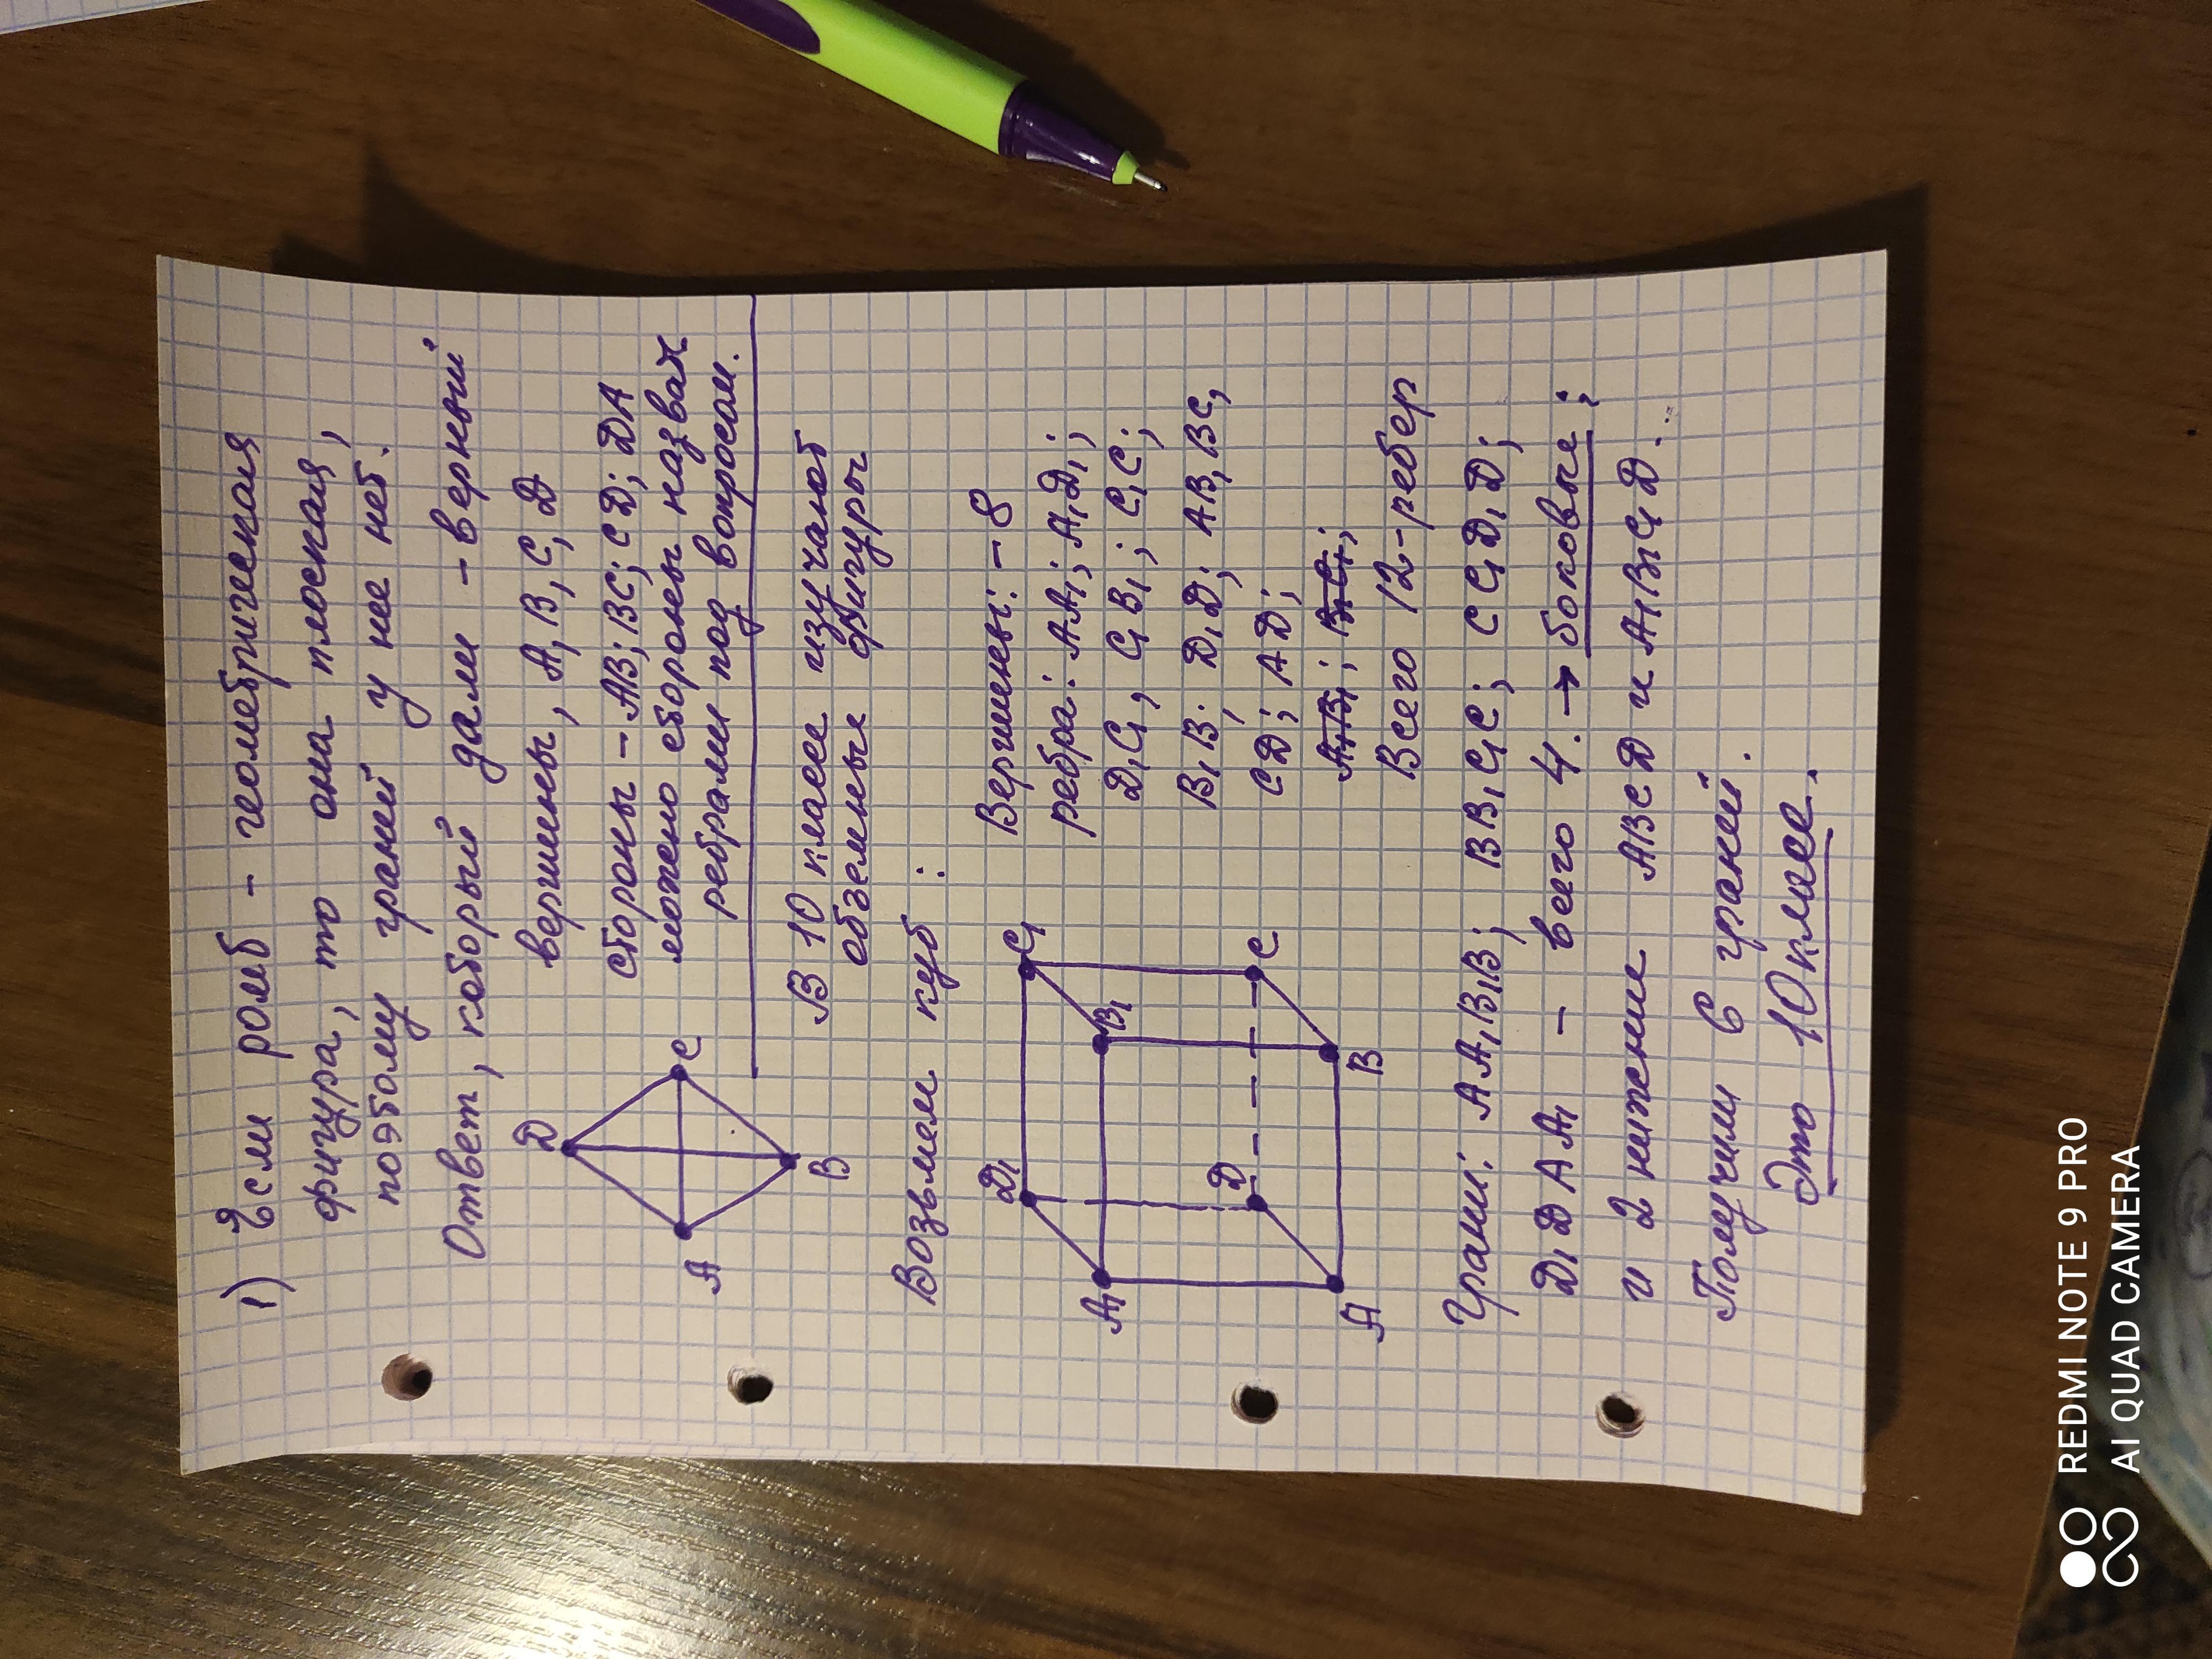 1) Если ромб - геометрическая
фигура, то она плоская,
поэтому граней у нее нет.
Ответ, который дали - верный
вершины, A, B, C, D
стороны - AB; BC; CD; DA
можно стороны назвать
ребрами под вопросом.
D
A
C
B
В 10 классе изучают
объемные фигуры
Возьмем куб:
Вершины: - 8
ребра: AA1; A1D1;
D1C1, C1B1; C1C;
B1B; D1D; AB, BC,
CD; AD;
A1B1; B1C1;
Всего 12-ребер
D1
C1
A1
B1
D
C
A
B
Грани: AA1B1B; BB1C1C; CC1D1D;
D1DAA1 - всего 4. → боковые;
и 2 нижние ABCD и A1B1C1D...
Получим 6 граней.
Это 10 класс.
REDMI NOTE 9 PRO
AI QUAD CAMERA